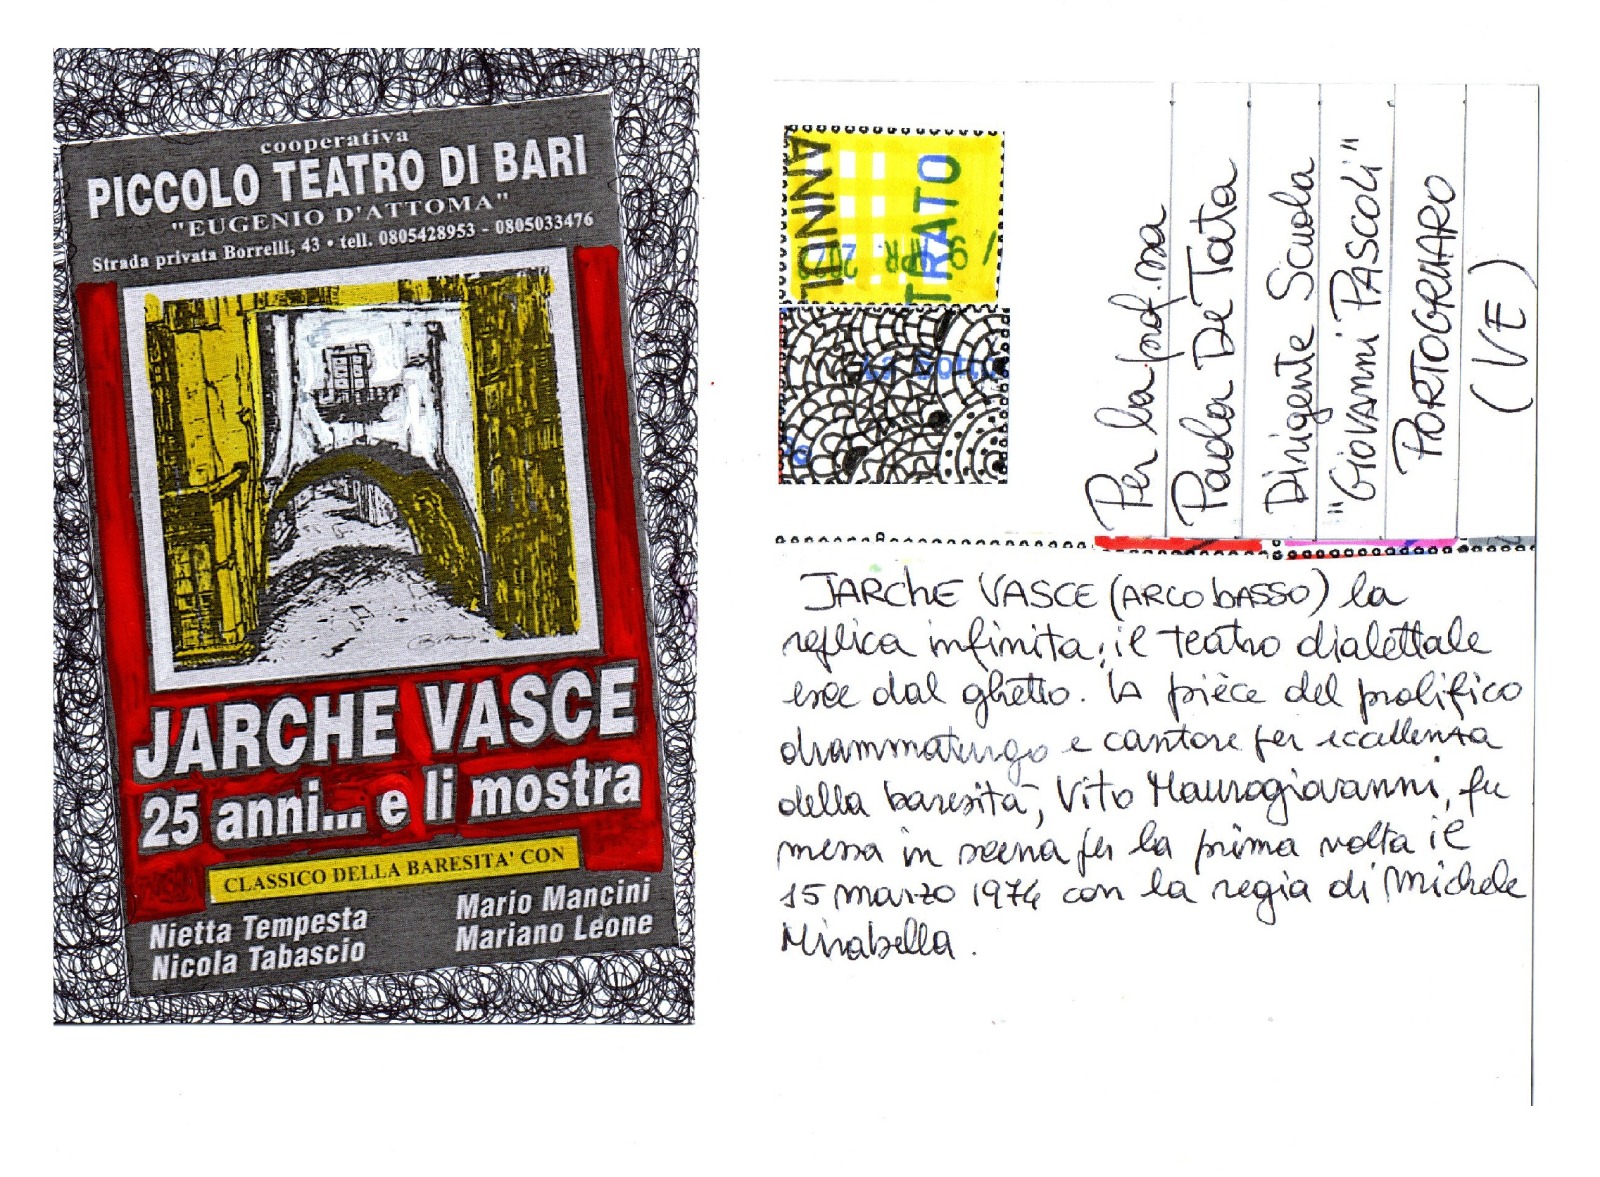 cooperativa
PICCOLO TEATRO DI BARI
"EUGENIO D'ATTOMA"
Strada privata Borrelli, 43 • tell. 0805428953 - 0805033476
JARCHE VASCE
25 anni... e li mostra
CLASSICO DELLA BARESITA' CON
Nietta Tempesta
Nicola Tabascio
Mario Mancini
Mariano Leone
ANNUL
TRATO
9 APR
Per la prof.ssa
Paola De Tata
Dirigente Scuola
"Giovanni PASCOLI"
PORTOGRUARO
(VE)
JARChE VASCE (ARCO bASSO) la
replica infinita; il teatro dialettale
esce dal ghetto. la pièce del prolifico
drammaturgo e cantore per eccellenza
della baresità, Vito Maurogiovanni, fu
messa in scena per la prima volta il
15 marzo 1974 con la regia di Michele
Mirabella.